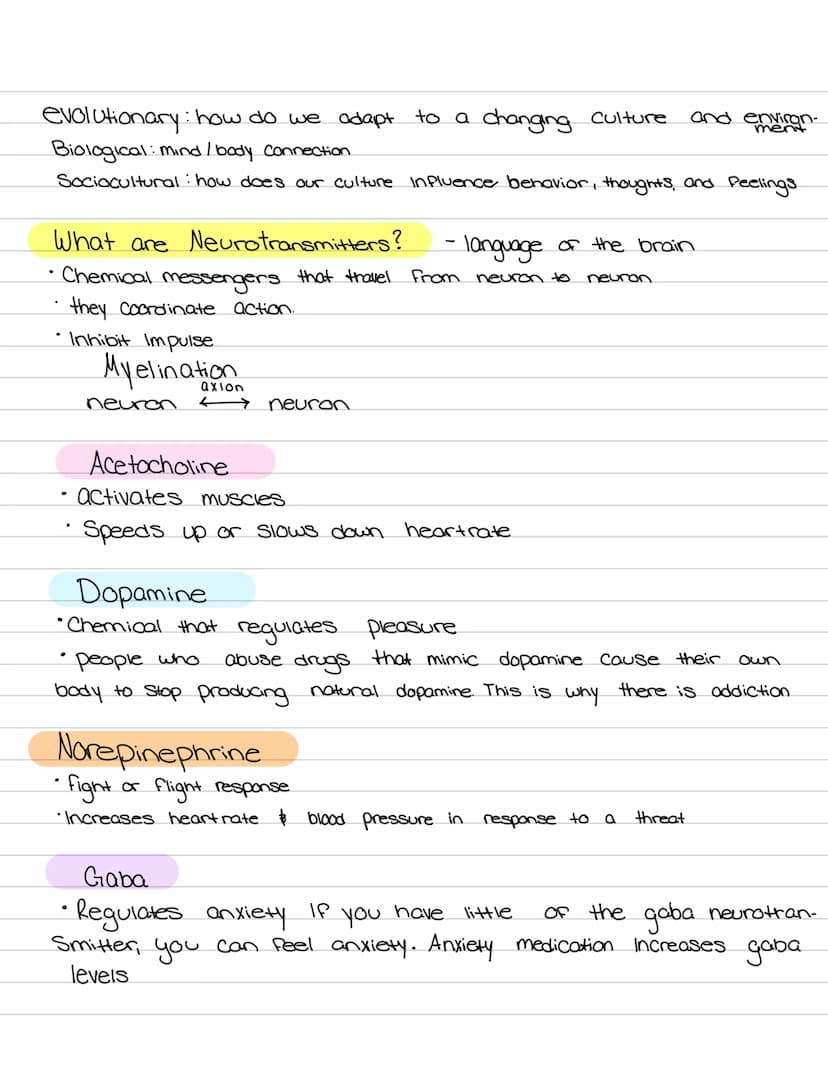 evolutionary: how do we adapt to a changing culture and environ-
ment
Biological: mind/body connection
Sociocultural: how does our culture influence behavior, thoughts, and feelings
What are Neurotransmitters? - language of the brain
• Chemical messengers that travel from neuron to neuron
• they coordinate action.
• Inhibit Impulse
Myelination
axion
neuron ⟷ neuron
Acetocholine
• activates muscles
• Speeds up or slows down heartrate
Dopamine
• Chemical that regulates pleasure
• people who abuse drugs that mimic dopamine cause their own
body to stop producing natural dopamine. This is why there is addiction
Norepinephrine
• fight or flight response
• Increases heartrate & blood pressure in response to a threat
Gaba
• Regulates anxiety If you have little of the gaba neurotran-
smitter, you can feel anxiety. Anxiety medication increases gaba
levels